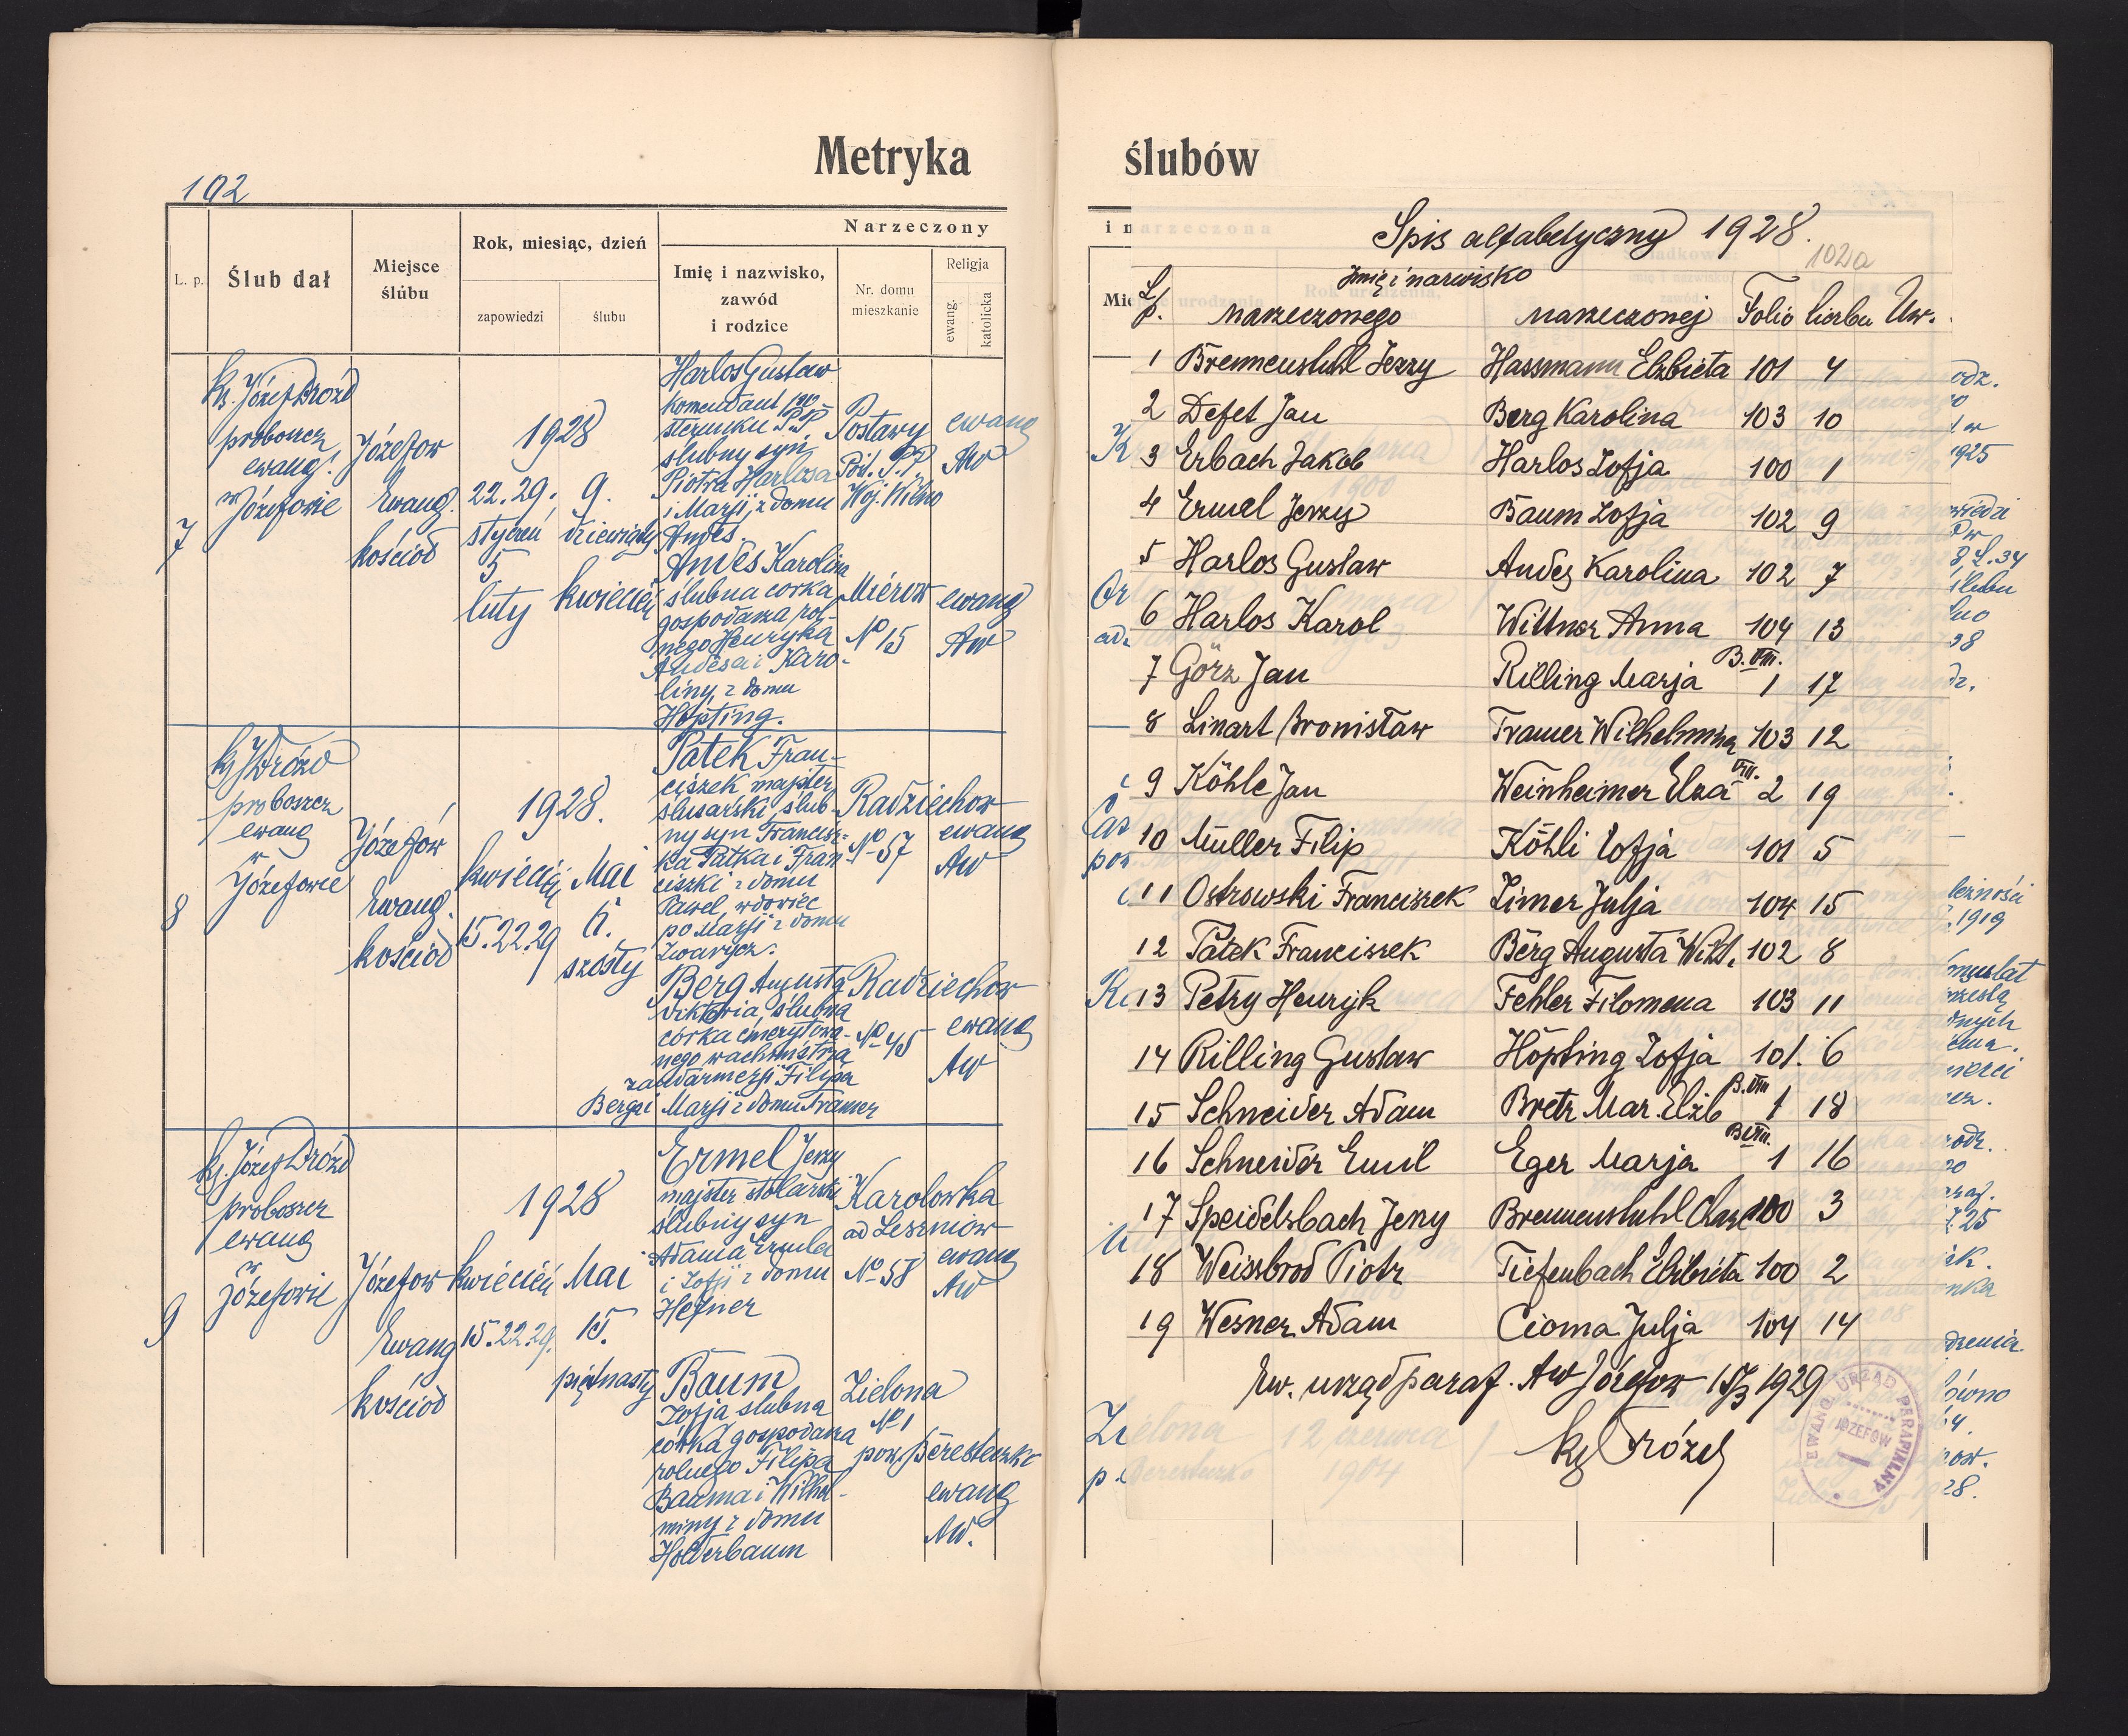 Metryka ślubów
102
L. p.
Ślub dał
Miejsce
ślubu
Rok, miesiąc, dzień
zapowiedzi
ślubu
Narzeczony
Imię i nazwisko,
zawód
i rodzice
Nr. domu
mieszkanie
Religja
ewang.
katolicka
7
ks. Józef Drózd
proboszcz
ewang.
w Józefowie
Józefow
Ewang.
kościoł
1928
22. 29.
styczeń
5
luty
9.
dziewiąty
kwiecień
Harlos Gustaw
komendant po-
sterunku P.P.
ślubny syn
Piotra Harlosa
i Marji z domu
Andes.
Postawy
Pow. P.P
Woj. Wilno
ewang
AW
Andes Karolina
ślubna córka
gospodarza rol-
nego Henryka
Andesa i Karo-
liny z domu
Höpting.
Mierow
No 15
ewang
AW
8
ks J Drózd
proboszcz
ewang
w
Józefowie
Józefów
Ewang.
kościoł
1928.
kwiecień
15. 22. 29
Mai
6.
szósty
Patek Fran-
ciszek majster
ślusarski, ślub-
ny syn Francisz-
ka Patka i Fran
ciszki z domu
Pawel, wdowiec
po Marji z domu
Zwarycz.
Radziechow
No 57
ewang
AW
Berg Augusta
Viktoria, ślubna
córka emerytowa-
nego wachmistrza
żandarmerji Filipa
Berga i Marji z domu Framer
Radziechow
No 45
ewang
AW
9
ks. Józef Drózd
proboszcz
ewang
w
Józefowie
Józefow
Ewang
kościoł
1928
kwiecień
15. 22. 29.
Mai
15.
piętnasty
Ermel Jerzy
majster stolarski
ślubny syn
Adama Ermla
i Zofji z domu
Hefner
Karolowka
ad Leszniow
No 58
ewang
AW
Baum
Zofja ślubna
córka gospodarza
rolnego Filipa
Bauma i Wilhel-
miny z domu
Holderbaum
Zielona
No 1
pow. Beresteczko
ewang
AW.
Spis alfabetyczny 1928.
102a
Lp.
Imię i nazwisko
narzeczonego narzeczonej Folio liczba Uw.
1 Brennenstuhl Jerzy Hassmann Elżbieta 101 4
2 Defet Jan Berg Karolina 103 10
3 Erbach Jakob Harlos Zofja 100 1
4 Ermel Jerzy Baum Zofja 102 9
5 Harlos Gustaw Andes Karolina 102 7
6 Harlos Karol Wittner Anna 104 13
7 Görz Jan Rilling Marja B. VIII. 1 17
8 Linart Bronisław Framer Wilhelmina 103 12
9 Köhle Jan Weinheimer Elza VIII. 2 19
10 Müller Filip Köhli Zofja 101 5
11 Ostrowski Franciszek Zimer Julja 104 15
12 Patek Franciszek Berg Augusta Wikt. 102 8
13 Petry Henryk Fehler Filomena 103 11
14 Rilling Gustaw Höpting Zofja 101. 6
15 Schneider Adam Bretz Mar. Elżb B. VIII 1 18
16 Schneider Emil Eger Marja B VIII. 1 16
17 Speidelsbach Jerzy Brennenstuhl 100 3
18 Weissbrod Piotr Tiefenbach Elżbieta 100 2
19 Wesner Adam Cioma Julja 104 14
Ew. urząd paraf. AW Józefow 15/3 1929
ks Drózd
EWANG. URZĄD PARAFIALNY
JÓZEFÓW